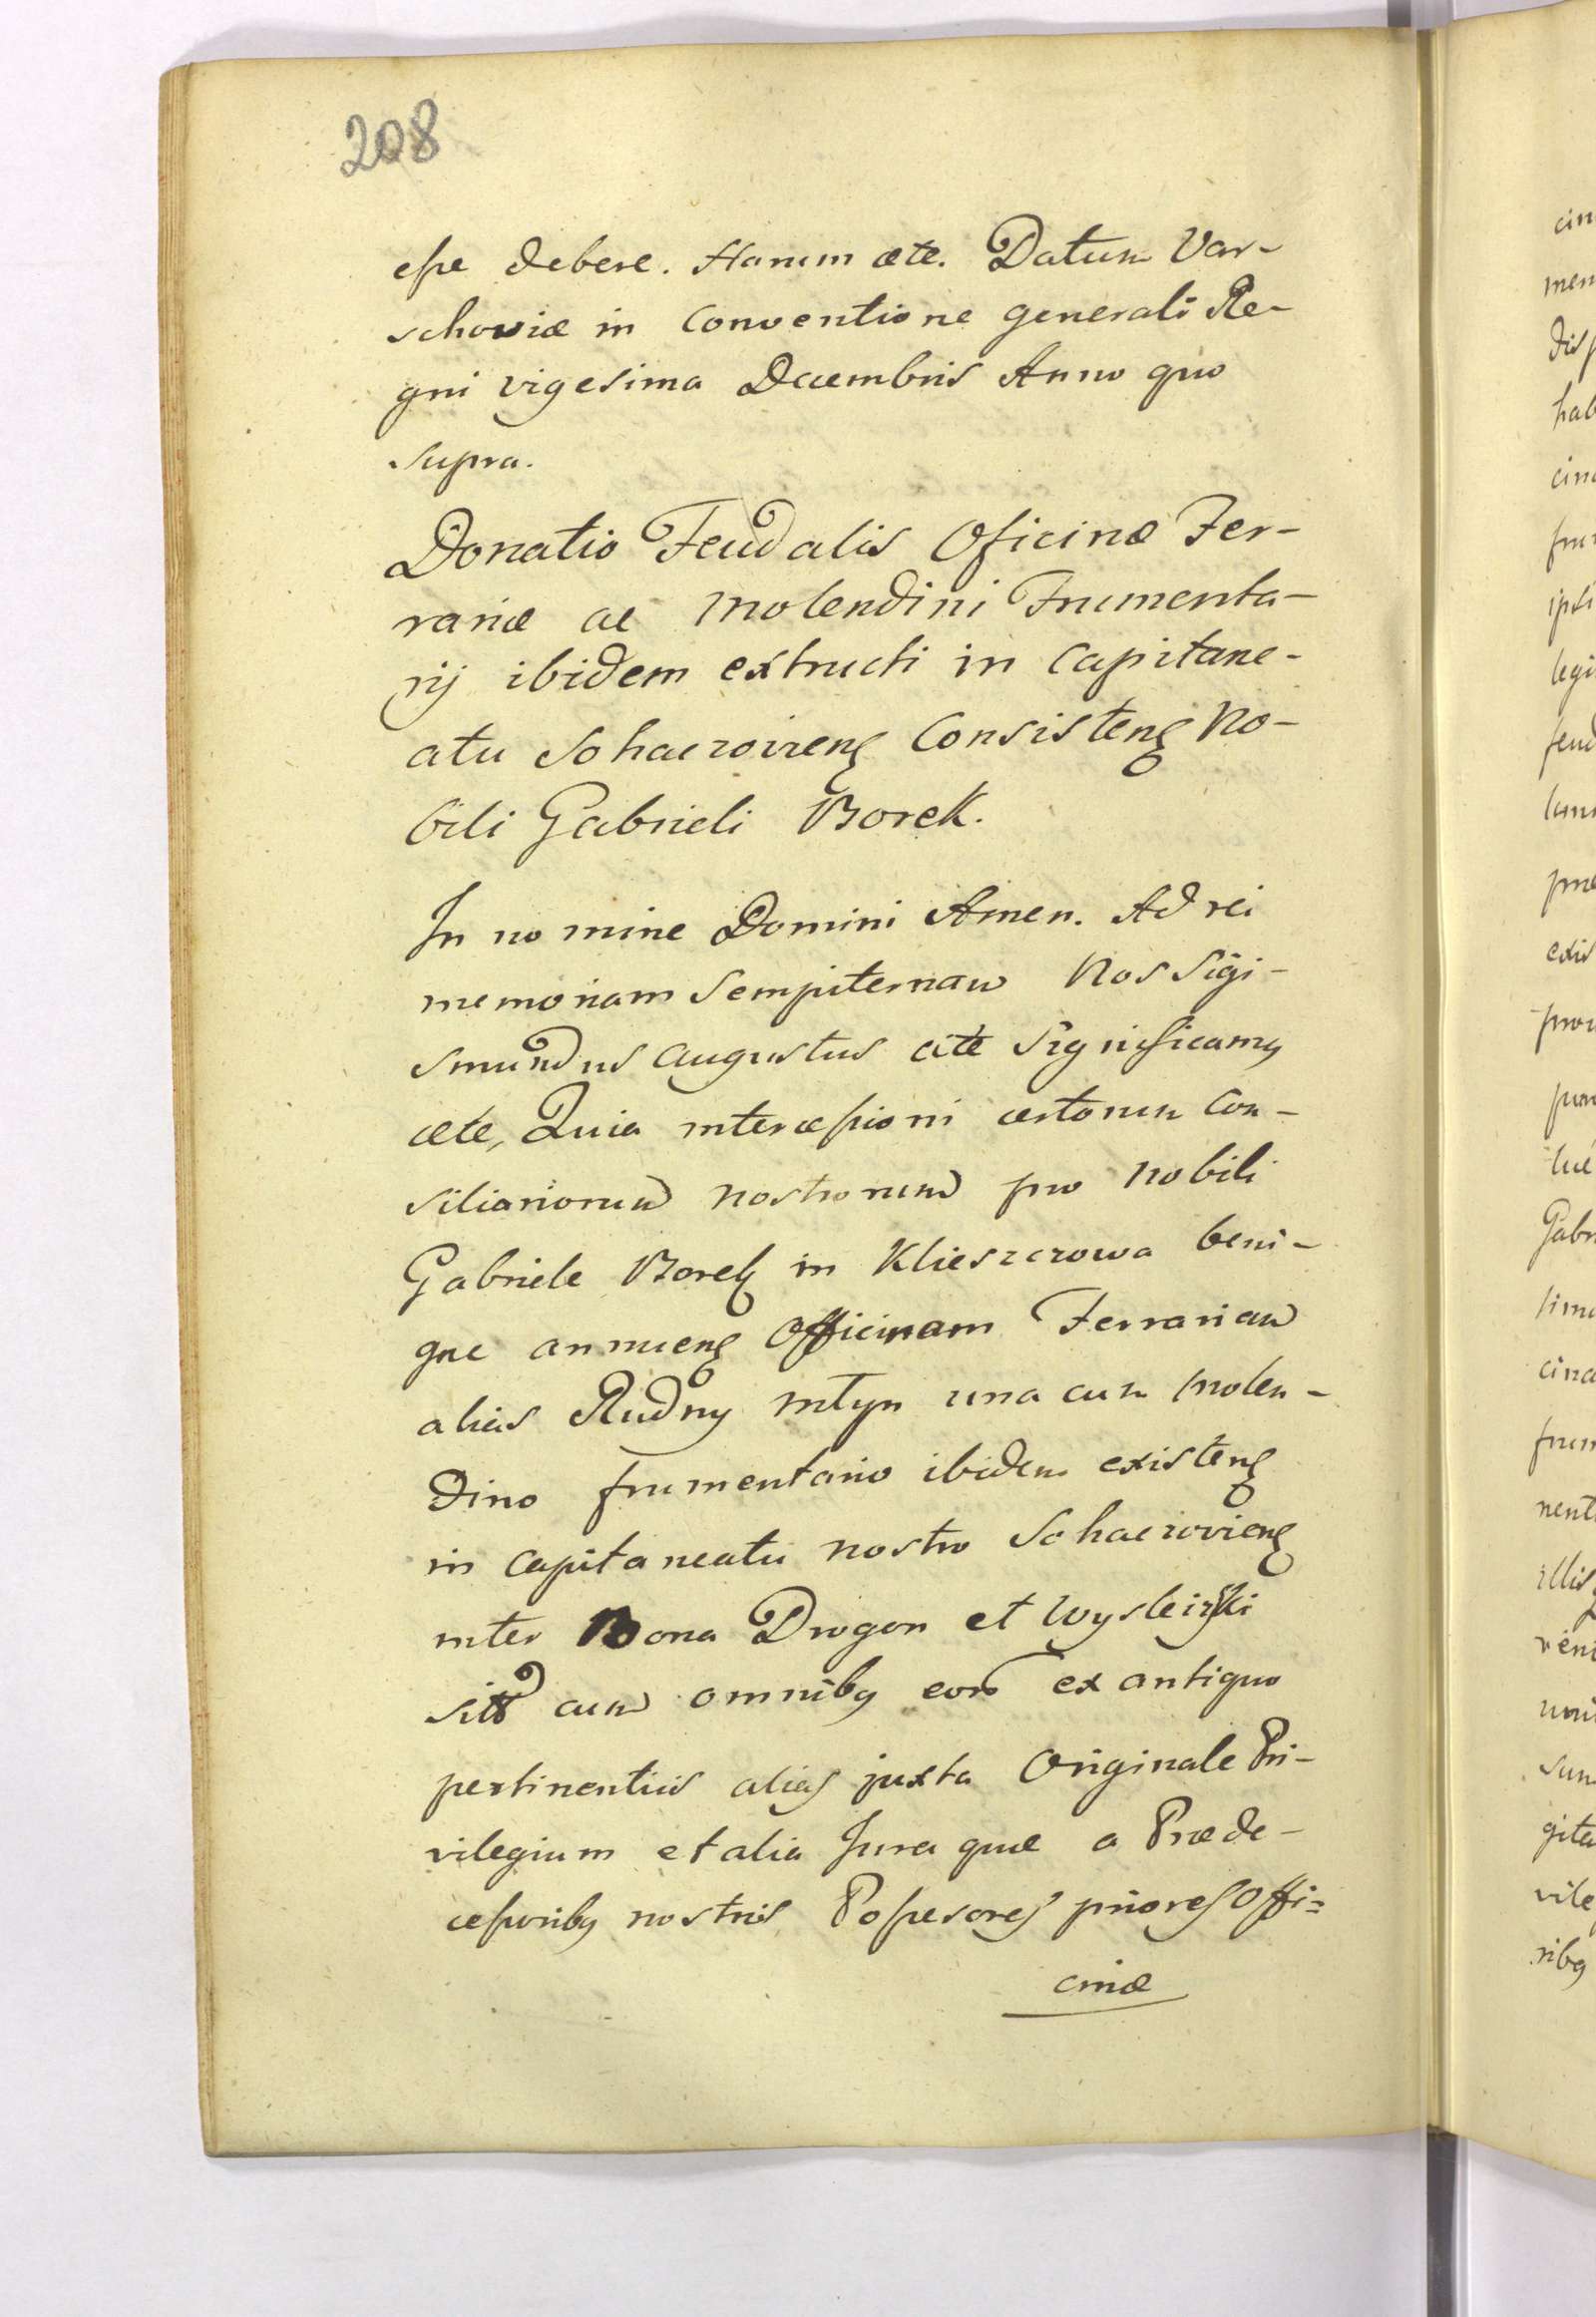 208
esse debere. Harum ete. Datum Var-
schoviæ in Conventione generali Re-
gni vigesima Decembris Anno quo
supra.
Donatio Feudalis Oficinæ Fer-
rariæ ac Molendini Frumenta-
rij ibidem extructi in Capitane-
atu Sohaczoviens Consistens No-
bili Gabrieli Borek.
In nomine Domini Amen. Ad rei
memoriam Sempiternam Nos Sigi-
smundus Augustus ete Significamus
ete, Quia intercessioni certorum Con-
siliariorum nostrorum pro Nobili
Gabriele Borek in Klieszczowa beni-
gne annuens Officinam Ferrariam
alias Rudny młyn una cum Molen-
dino frumentario ibidem existens
in Capitaneatu nostro Sohaczoviens
inter Bona Drogon et
cum omnibus eor ex antiquo
pertinentiis alias juxta Originale Pri-
vilegium et alia Jura quæ a Præde-
cessoribus nostris Possesores priores Offi=
cinæ